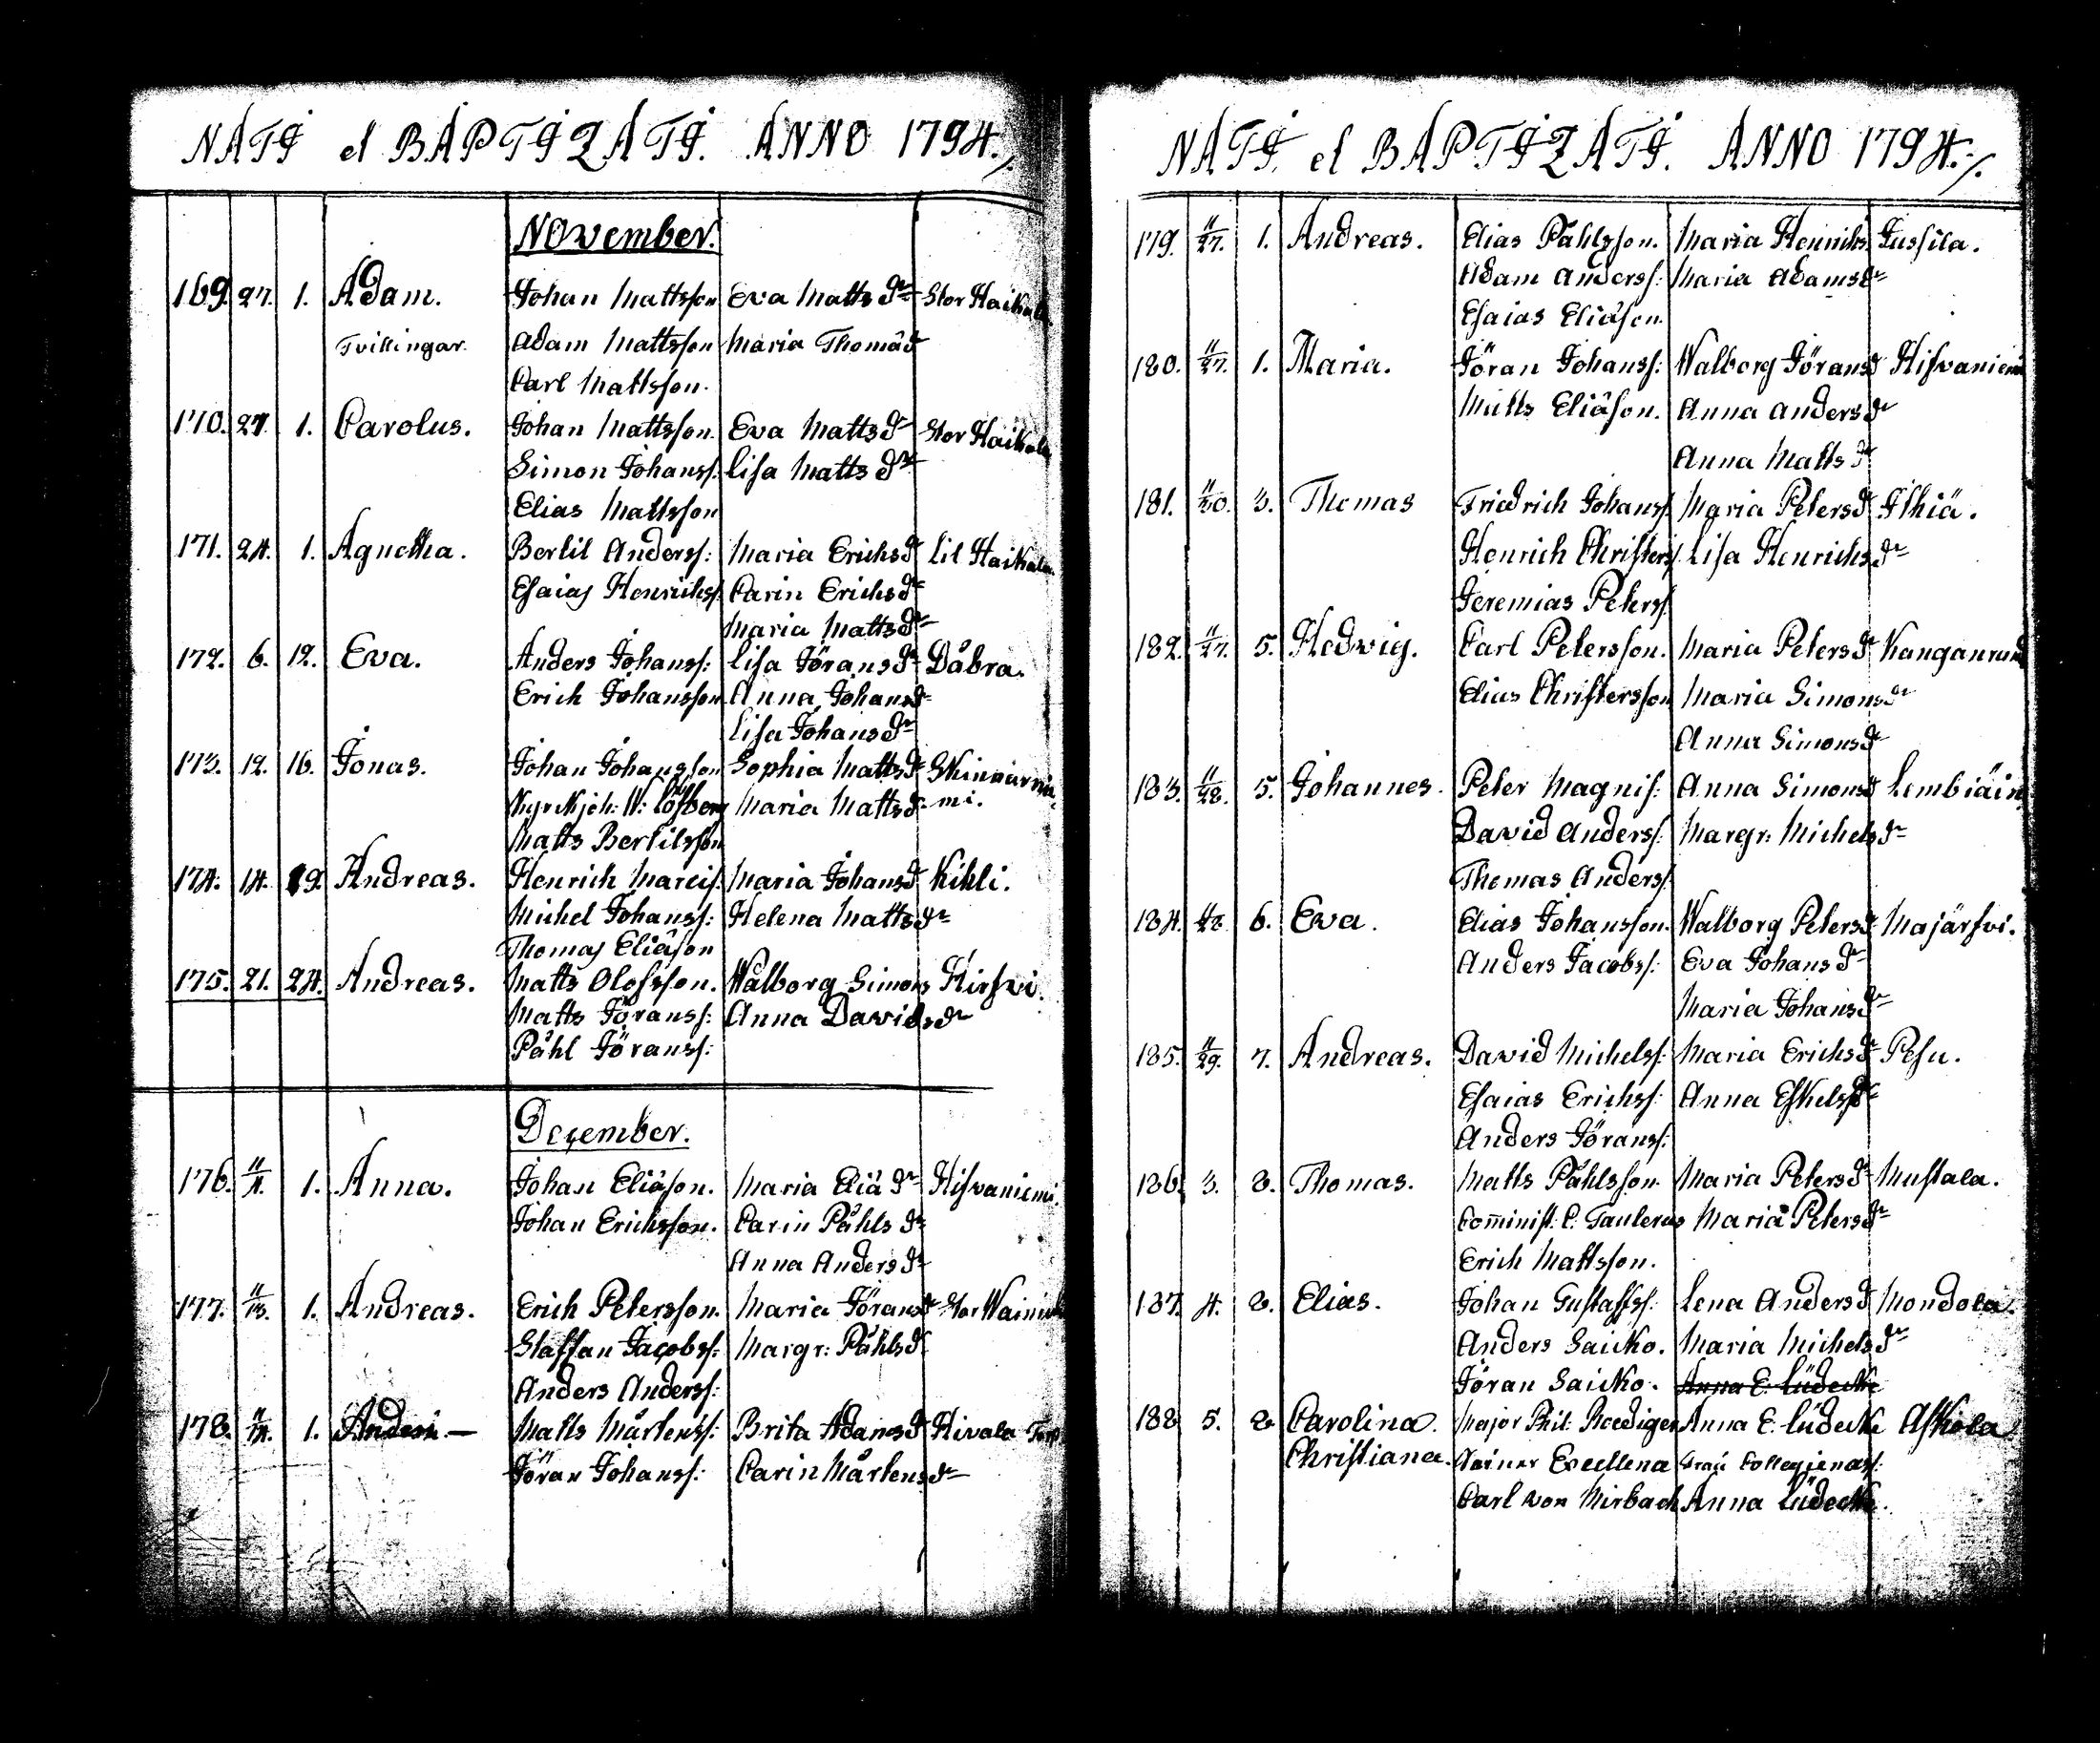 NATI et BAPTIZATI. ANNO 1794./.
November.
169. 27. 1. Adam. Johan Mattsson Eva Matts dr Stor Haikala
Tvillingar. Adam Mattsson Maria Thomæ dr
Carl Mattsson.
170. 27. 1. Carolus. Johan Mattsson. Eva Matts dr Stor Haikala
Simon Johanss: Lisa Matts dr
Elias Mattsson
171. 24. 1. Agnetha. Bertil Anderss: Maria Erichs dr Lil Haikala
Esaias Henrichss: Carin Erichs dr
Maria Matts dr
172. 6. 12. Eva. Anders Johanss: Lisa Jörans dr Dåbra.
Erich Johansson. Anna Johans dr
Lisa Johans dr
173. 12. 16. Jonas. Johan Johansson Sophia Matts dr Skinnarnie-
W: Löfberg Maria Matts dr mi.
Matts Bertilsson
174. 14. 19. Andreas. Henrich Marcis. Maria Johans dr Kihli.
Michel Johanss: Helena Matts dr
Thomas Eliäson
175. 21. 24. Andreas. Matts Olofsson. Walborg Simons Hirfvi.
Matts Jöranss: Anna Davids dr
Påhl Jöranss:
December.
176. 11/4. 1. Anna. Johan Eliäson. Maria Eliä dr Hifvaniemi.
Johan Erichsson. Carin Påhls dr
Anna Anders dr
177. 11/13. 1. Andreas. Erich Petersson. Maria Jörans dr Stor
Staffan Jacobss: Margr: Påhls dr
Anders Anderss:
178. 11/14. 1. Matts Mårtenss: Brita Adams dr Hivala Torp
Jöran Johanss: Carin Mårtens dr
NATI. et BAPTIZATI. ANNO 1794./.
179. 11/27. 1. Andreas. Elias Påhlsson. Maria Henrichs. Jussila.
Adam Anderss: Maria Adams dr
Esaias Eliäson.
180. 11/27. 1. Maria. Jöran Johanss: Walborg Jörans dr Hifvaniemi
Matts Eliäson. Anna Anders dr
Anna Matts dr
181. 11/20. 3. Thomas Friedrich Johanss. Maria Peters dr Ilhiä.
Henrich Christerss. Lisa Henrichs dr
Jeremias Peterss.
182. 11/27. 5. Hedvig. Carl Petersson. Maria Peters dr Kangan
Elias Christersson Maria Simons dr
Anna Simons dr
183. 11/28. 5. Johannes. Peter Magnis: Anna Simons dr
David Anderss: Margr: Michels dr
Thomas Anderss:
184. 11/28. 6. Eva. Elias Johansson. Walborg Peters dr Majärfvi.
Anders Jacobss: Eva Johans dr
Maria Johans dr
185. 11/29. 7. Andreas. David Michelss: Maria Erichs dr Pesu.
Esaias Erichss: Anna Eskels dr
Anders Jöranss:
186. 3. 8. Thomas. Matts Påhlsson. Maria Peters dr Mustala.
Cominist: C. Taulerus Maria Peters dr
Erich Mattsson.
187. 4. 8. Elias. Johan Gustafss: Lena Anders dr Mondola.
Anders Saicko. Maria Michels dr
Jöran Saicko. Anna E. Lüdecke
188 5. 8 Carolina. Major Phil: Roediger Anna E. Lüdecke Askola
Christiana. Excellena
Carl von Mirbach Anna Lüdecke.